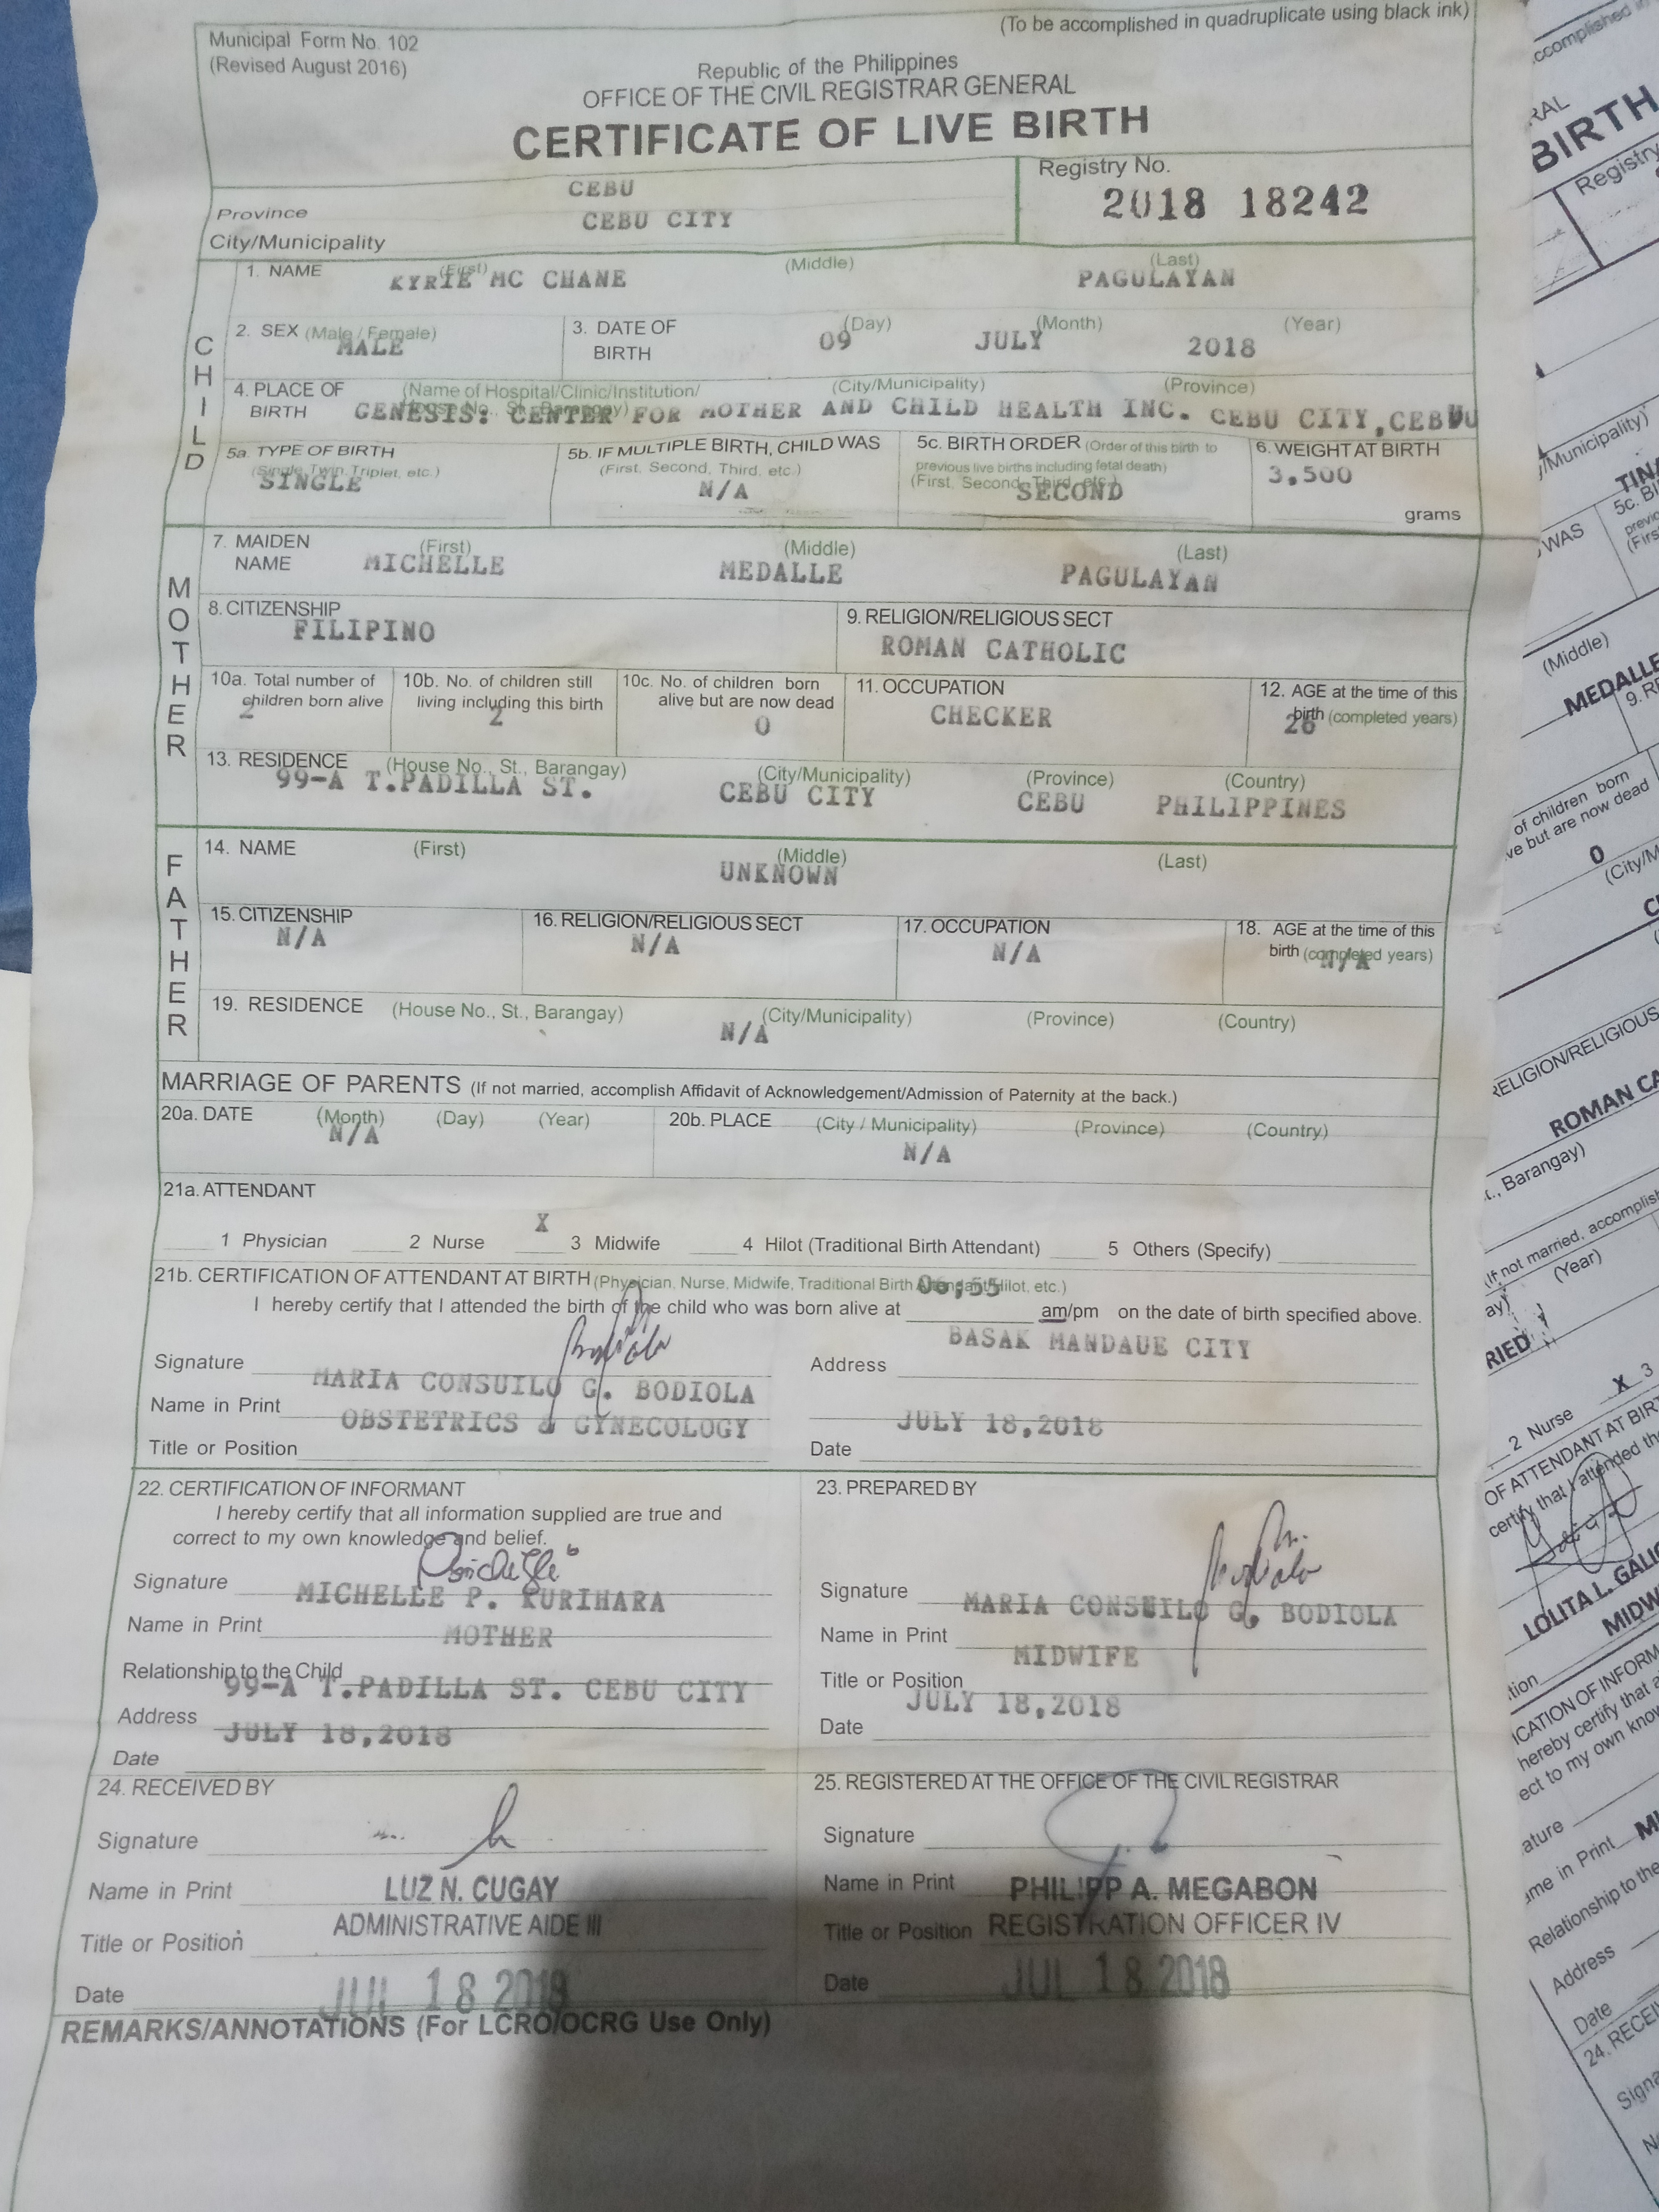 (To be accomplished in quadruplicate using black ink)
Municipal Form No. 102
(Revised August 2016)
Republic of the Philippines
OFFICE OF THE CIVIL REGISTRAR GENERAL
CERTIFICATE OF LIVE BIRTH
Province CEBU
City/Municipality CEBU CITY
Registry No.
2018 18242
CHILD
1. NAME (First) (Middle) (Last)
KYRIE MC CHANE PAGULAYAN
2. SEX (Male / Female)
MALE
3. DATE OF BIRTH (Day) (Month) (Year)
09 JULY 2018
4. PLACE OF BIRTH (Name of Hospital/Clinic/Institution/ House No., St., Barangay) (City/Municipality) (Province)
GENESIS: CENTER FOR MOTHER AND CHILD HEALTH INC. CEBU CITY,CEBU
5a. TYPE OF BIRTH
(Single, Twin, Triplet, etc.)
SINGLE
5b. IF MULTIPLE BIRTH, CHILD WAS
(First, Second, Third, etc.)
N/A
5c. BIRTH ORDER (Order of this birth to
previous live births including fetal death)
(First, Second, Third, etc.)
SECOND
6. WEIGHT AT BIRTH
3,500
grams
MOTHER
7. MAIDEN NAME (First) (Middle) (Last)
MICHELLE MEDALLE PAGULAYAN
8. CITIZENSHIP
FILIPINO
9. RELIGION/RELIGIOUS SECT
ROMAN CATHOLIC
10a. Total number of
children born alive
2
10b. No. of children still
living including this birth
2
10c. No. of children born
alive but are now dead
0
11. OCCUPATION
CHECKER
12. AGE at the time of this
birth (completed years)
26
13. RESIDENCE (House No., St., Barangay) (City/Municipality) (Province) (Country)
99-A T.PADILLA ST. CEBU CITY CEBU PHILIPPINES
FATHER
14. NAME (First) (Middle) (Last)
UNKNOWN
15. CITIZENSHIP
N/A
16. RELIGION/RELIGIOUS SECT
N/A
17. OCCUPATION
N/A
18. AGE at the time of this
birth (completed years)
N/A
19. RESIDENCE (House No., St., Barangay) (City/Municipality) (Province) (Country)
N/A
MARRIAGE OF PARENTS (If not married, accomplish Affidavit of Acknowledgement/Admission of Paternity at the back.)
20a. DATE (Month) (Day) (Year)
N/A
20b. PLACE (City / Municipality) (Province) (Country)
N/A
21a. ATTENDANT
X
1 Physician 2 Nurse 3 Midwife 4 Hilot (Traditional Birth Attendant) 5 Others (Specify)
21b. CERTIFICATION OF ATTENDANT AT BIRTH (Physician, Nurse, Midwife, Traditional Birth Attendant/Hilot, etc.)
06;55
I hereby certify that I attended the birth of the child who was born alive at am/pm on the date of birth specified above.
Signature
Name in Print MARIA CONSUILO G. BODIOLA
Title or Position OBSTETRICS & GYNECOLOGY
Address BASAK MANDAUE CITY
Date JULY 18,2018
22. CERTIFICATION OF INFORMANT
I hereby certify that all information supplied are true and
correct to my own knowledge and belief.
Signature Michelle
Name in Print MICHELLE P. KURIHARA
Relationship to the Child MOTHER
Address 99-A T.PADILLA ST. CEBU CITY
Date JULY 18,2018
23. PREPARED BY
Signature
Name in Print MARIA CONSUILO G. BODIOLA
Title or Position MIDWIFE
Date JULY 18,2018
24. RECEIVED BY
Signature
Name in Print LUZ N. CUGAY
Title or Position ADMINISTRATIVE AIDE III
Date JUL 18 2018
25. REGISTERED AT THE OFFICE OF THE CIVIL REGISTRAR
Signature
Name in Print PHILIPP A. MEGABON
Title or Position REGISTRATION OFFICER IV
Date JUL 18 2018
REMARKS/ANNOTATIONS (For LCRO/OCRG Use Only)
BIRTH
Registry
/Municipality)
5c.
WAS
(First
(Middle)
MEDALLE
of children born
but are now dead
0
RELIGION/RELIGIOUS
ROMAN
Barangay)
(If not married,
(Year)
X 3
2 Nurse
OF ATTENDANT AT
certify that I attended the
LOLITA L.
hereby certify that
ect to my own
Name in Print
Relationship to the
Address
Date
24.